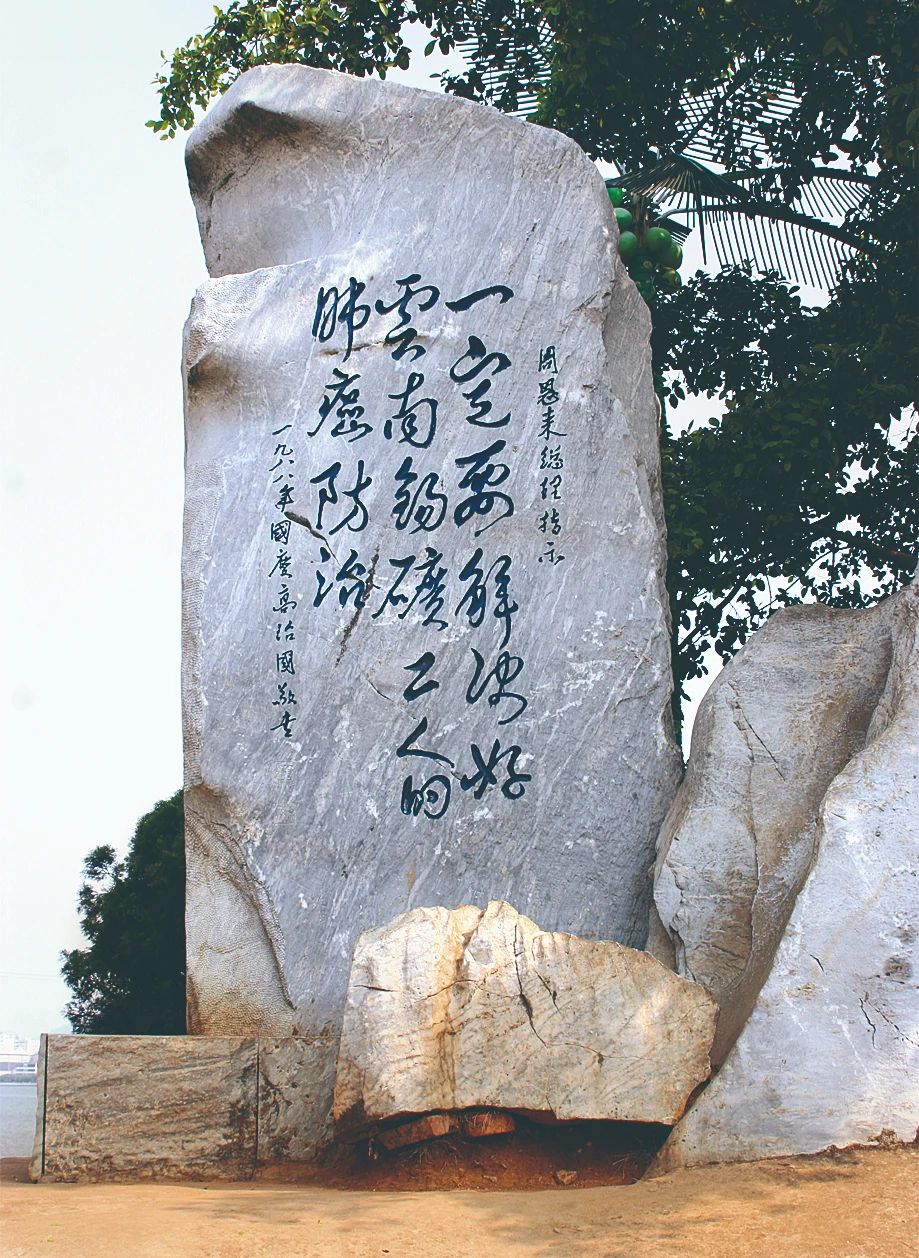 周恩来總理指示
一定要解決好
雲南錫礦工人的
肺癌防治
一九八八年國慶高治國敬書